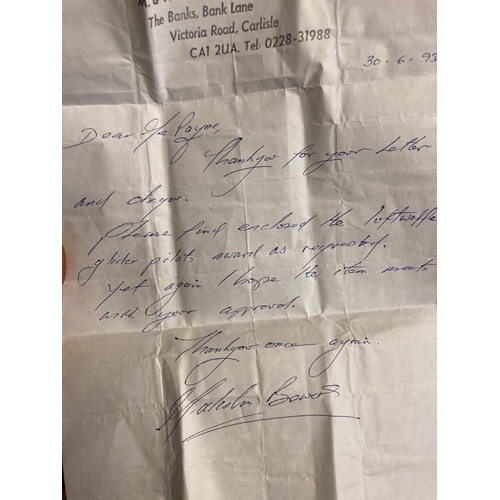 M. &
The Banks, Bank Lane
Victoria Road, Carlisle
CA1 2UA. Tel: 0228-31988
30-6-93
Dear Mr Payne,
Thankyou for your letter
and cheque.
Please find enclosed the luftwaffe
glider pilots award as requested.
Yet again I hope the item meets
with your approval.
Thankyou once again.
Malcolm Bowers